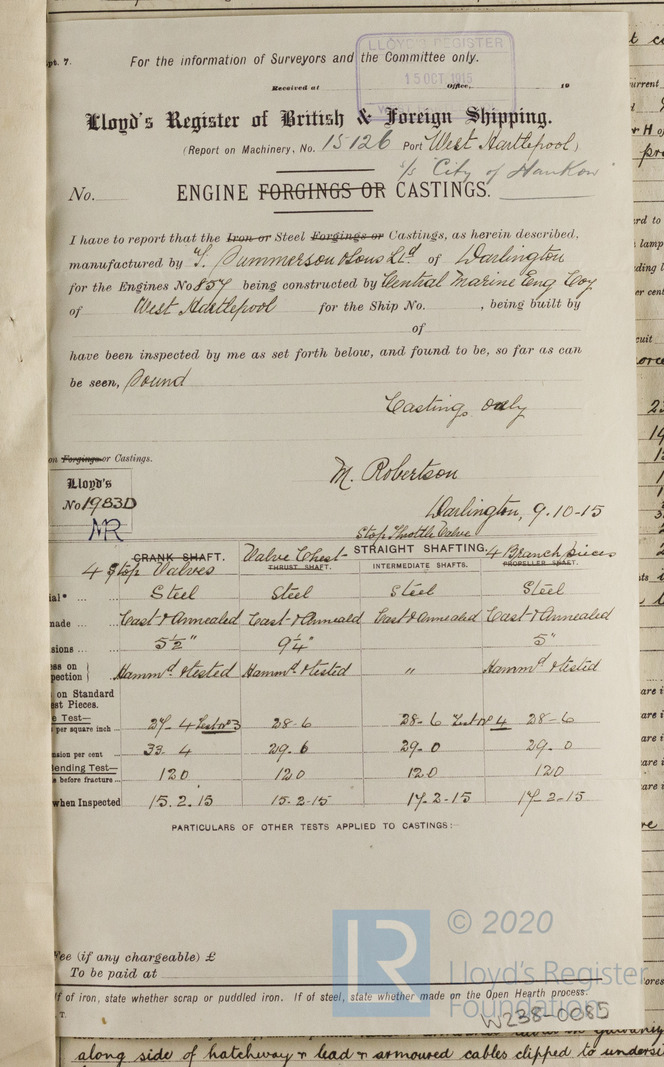 pt. 7.
For the information of Surveyors and the Committee only.
LLOYD'S REGISTER
15 OCT. 1915
Received at Office, 19
Lloyd's Register of British & Foreign Shipping.
(Report on Machinery, No. 15126 Port West Hartlepool)
s/s "City of Hankow"
No. ENGINE FORGINGS OR CASTINGS.
I have to report that the Iron or Steel Forgings or Castings, as herein described,
manufactured by T. Summerson & Sons Ltd of Darlington
for the Engines No 857 being constructed by Central Marine Eng Coy
of West Hartlepool for the Ship No. , being built by
of
have been inspected by me as set forth below, and found to be, so far as can
be seen, Sound
Castings only
on Forgings or Castings.
Lloyd's
No 1983D
MR
M. Robertson
Darlington, 9-10-15
Stop Throttle Valve
CRANK SHAFT. Valve Chest STRAIGHT SHAFTING. 4 Branch pieces
4 Stop Valves THRUST SHAFT. INTERMEDIATE SHAFTS. PROPELLER SHAFT.
ial* ... Steel Steel Steel Steel
made ... Cast & Annealed Cast & Annealed Cast & Annealed Cast & Annealed
sions ... 5½" 9¼" 5"
ss on
pection Hammd & tested Hammd & tested " Hammd & tested
on Standard
est Pieces.
e Test—
per square inch ... 27-4 Test No 3 28-6 28-6 Test No 4 28-6
nsion per cent 33.4 29.6 29.0 29.0
ending Test—
e before fracture ... 120 120 120 120
when Inspected 15.2.15 15-2-15 17-2-15 17-2-15
PARTICULARS OF OTHER TESTS APPLIED TO CASTINGS:—
Fee (if any chargeable) £
To be paid at
If of iron, state whether scrap or puddled iron. If of steel, state whether made on the Open Hearth process.
T.
© 2020
Lloyd's Register
Foundation
W238-0085
along side of hatchway & lead & armoured cables clipped to undersi